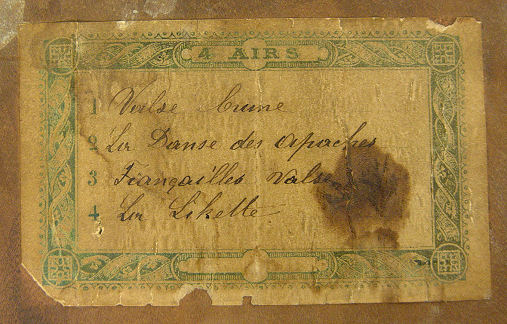 4 AIRS
1 Valse brune
2 La Danse des apaches
3 Fiançailles Valse
4 La Likette